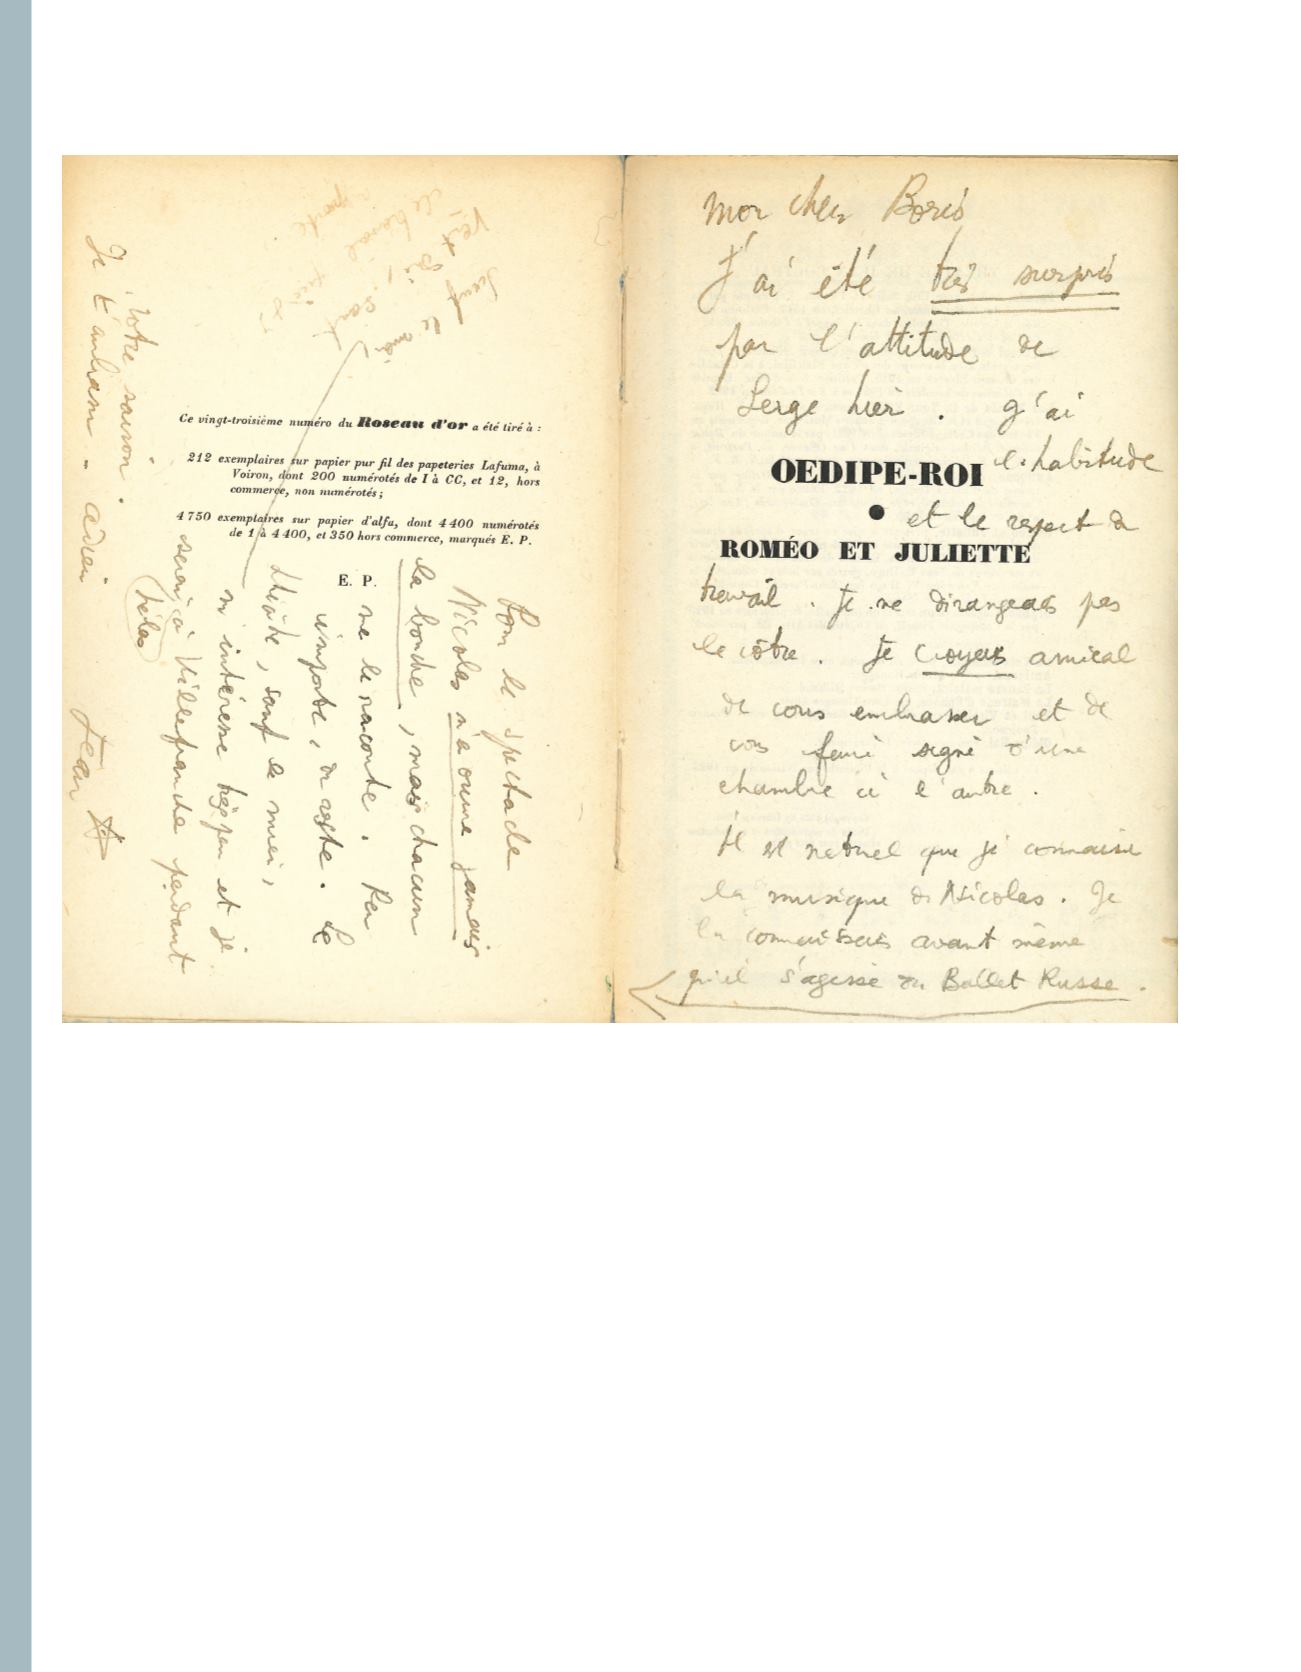 mon cher Boris
J'ai été très surpris
par l'attitude de
Serge hier. J'ai
l'habitude
OEDIPE-ROI
et le respect du
ROMÉO ET JULIETTE
travail. Je ne dérangeais pas
le vôtre. Je croyais amical
de vous embrasser et de
vous faire signe d'une
chambre à l'autre.
Il est naturel que je connaisse
la musique de Nicolas. Je
la connaissais avant même
qu'il s'agisse du Ballet Russe.
Pour le spectacle
Nicolas n'a ouvert jamais
la bouche, mais chacun
me le raconte. Peu
importe, du reste. Le
théâtre, sauf le mien,
m'intéresse très peu et je
serai à Villefranche pendant
(hélas)
votre saison.
Je t'embrasse. adieu
Jean
Ce vingt-troisième numéro du Roseau d'or a été tiré à :
212 exemplaires sur papier pur fil des papeteries Lafuma, à
Voiron, dont 200 numérotés de I à CC, et 12, hors
commerce, non numérotés ;
4 750 exemplaires sur papier d'alfa, dont 4 400 numérotés
de 1 à 4 400, et 350 hors commerce, marqués E. P.
E. P.